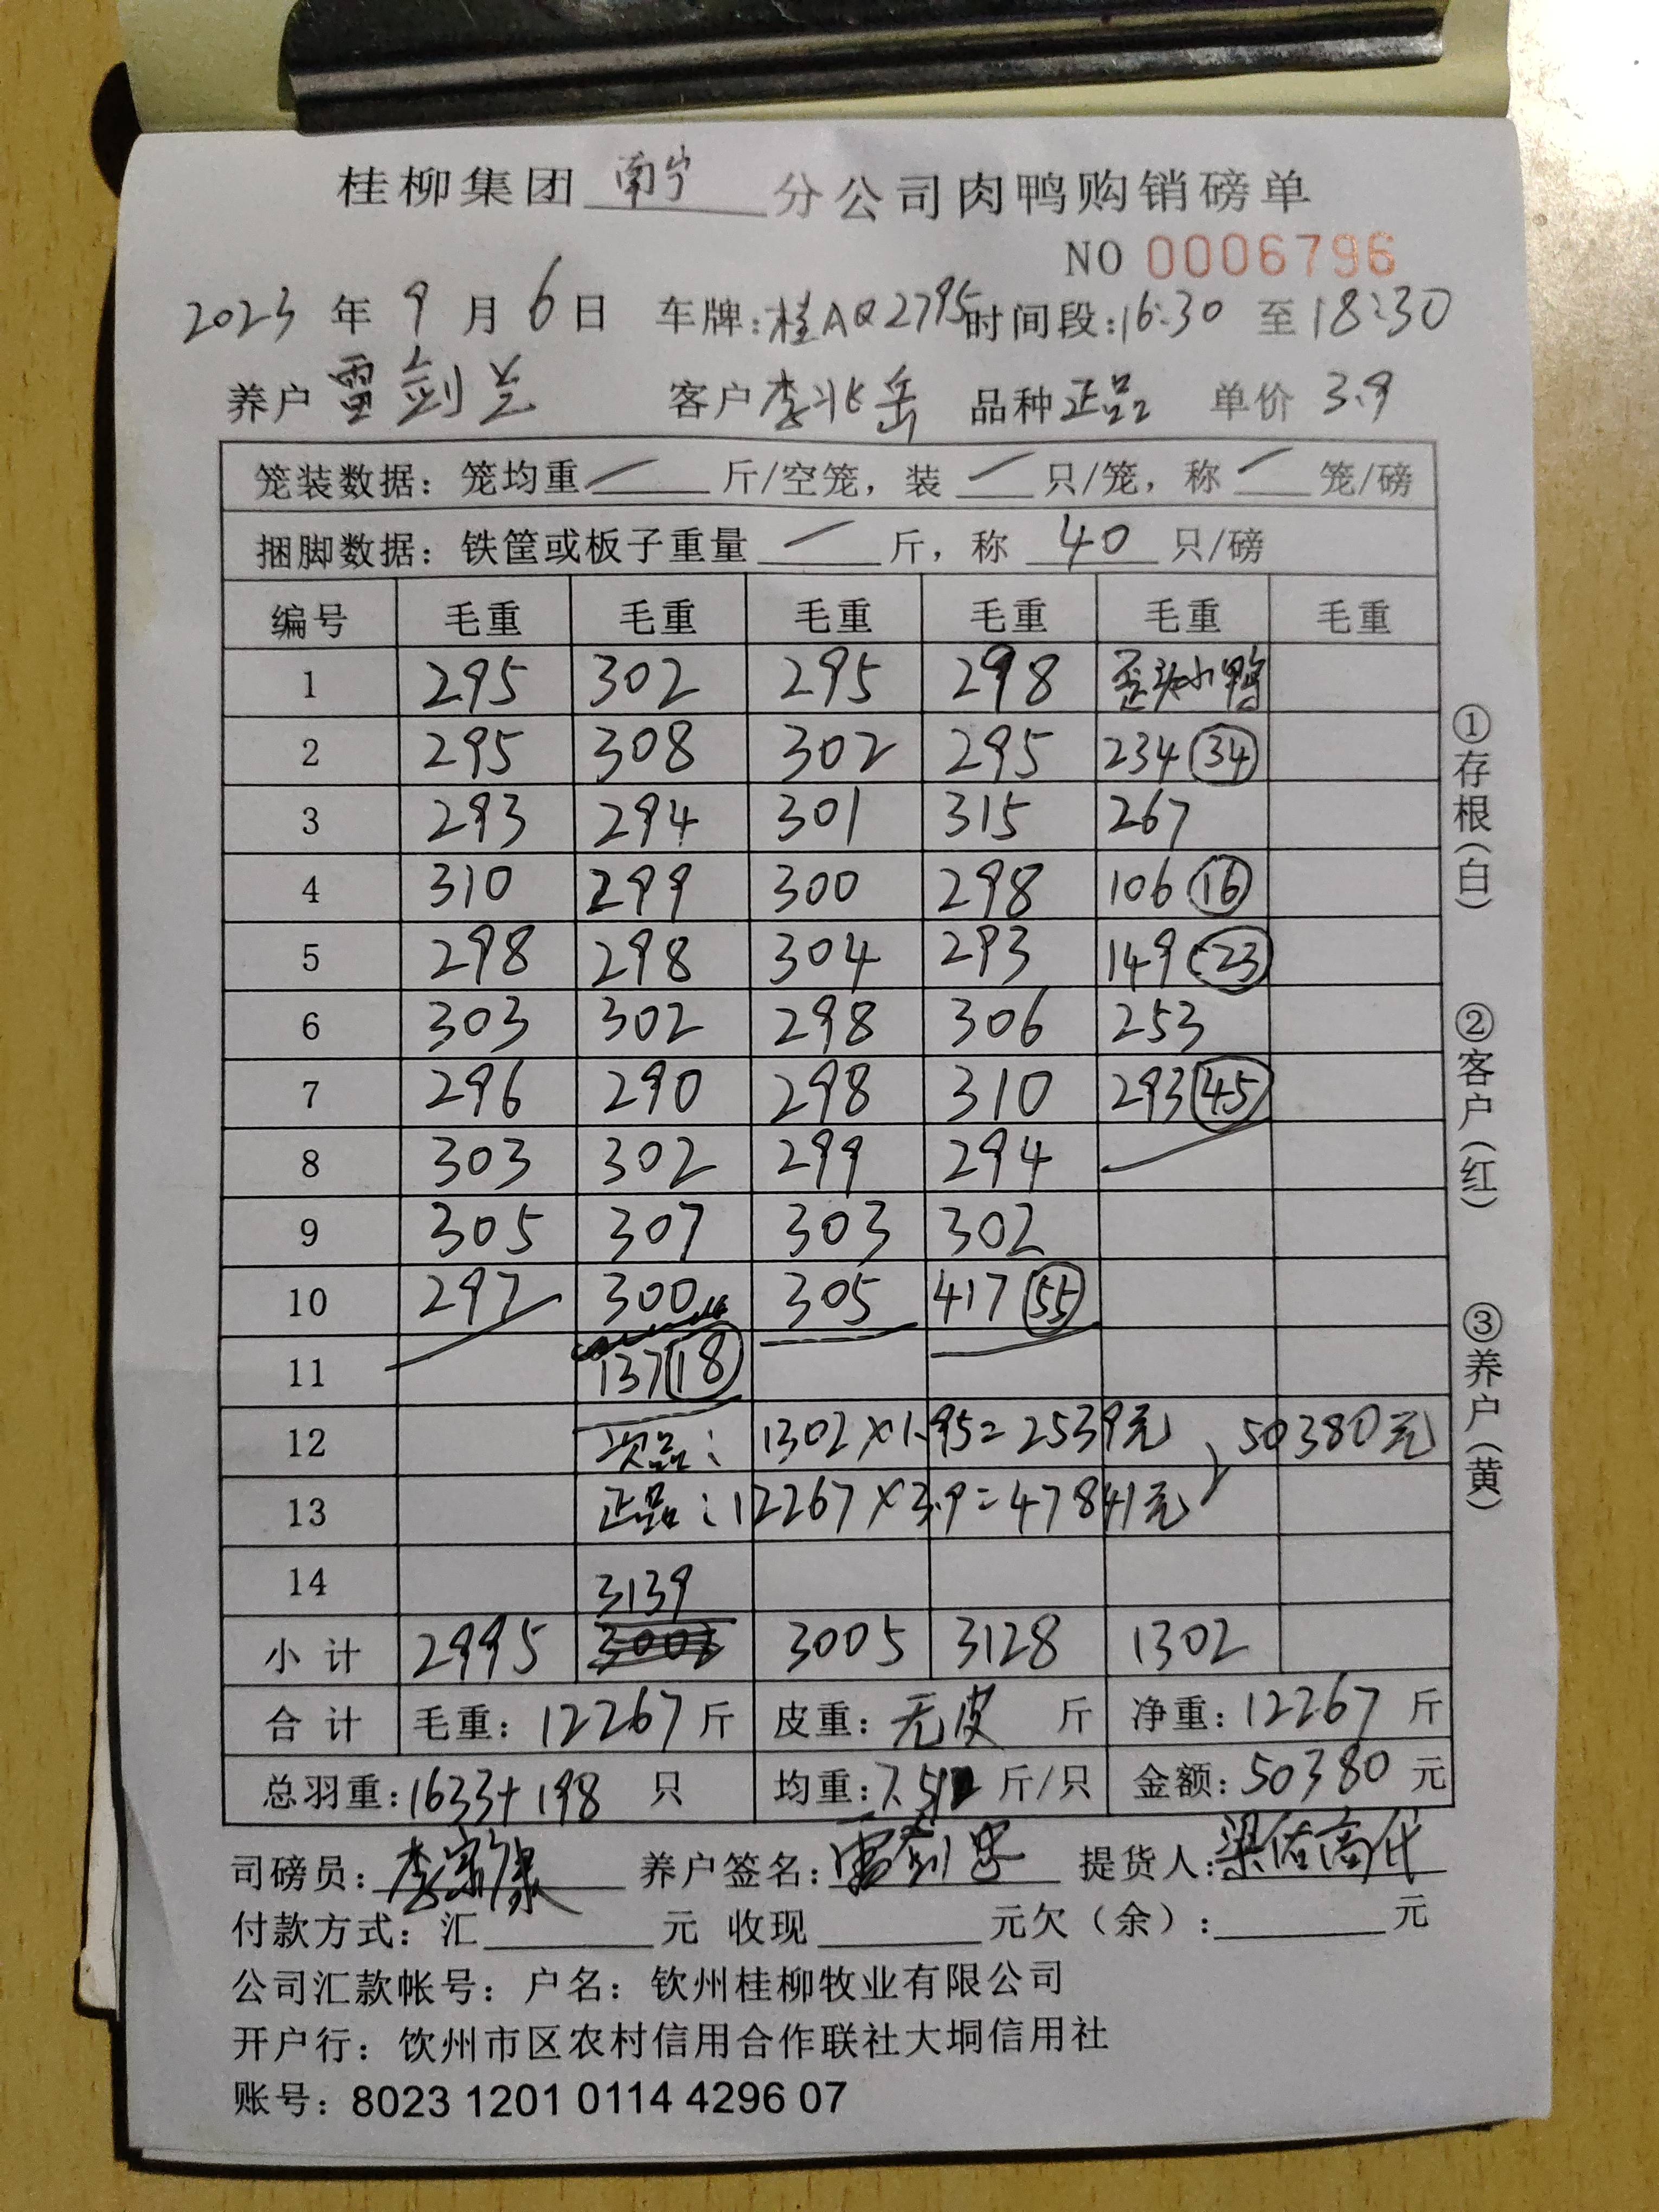 桂柳集团 南宁 分公司肉鸭购销磅单
NO 0006796
2023 年 9 月 6 日 车牌:桂AQ2795 时间段:16:30 至 18:30
养户 雷剑兰 客户 李兆岳 品种 正品 单价 3.9
笼装数据: 笼均重 — 斤/空笼, 装 — 只/笼, 称 — 笼/磅
捆脚数据: 铁筐或板子重量 — 斤, 称 40 只/磅
编号 毛重 毛重 毛重 毛重 毛重 毛重
1 295 302 295 298 歪头小鸭
2 295 308 302 295 234 (34)
3 293 294 301 315 267
4 310 299 300 298 106 (16)
5 298 298 304 293 149 (23)
6 303 302 298 306 253
7 296 290 298 310 293 (45)
8 303 302 299 294
9 305 307 303 302
10 297 300 305 417 (55)
11 137 (18)
12 次品: 1302×1.95=2539元 , 50380元
13 正品: 12267×3.9=47841元
14 3139
小计 2995 3005 3128 1302
合计 毛重: 12267 斤 皮重: 无皮 斤 净重: 12267 斤
总羽重: 1633+198 只 均重: 7.512 斤/只 金额: 50380 元
司磅员: 养户签名: 提货人:
付款方式: 汇 元 收现 元欠(余): 元
公司汇款帐号: 户名: 钦州桂柳牧业有限公司
开户行: 饮州市区农村信用合作联社大垌信用社
账号: 8023 1201 0114 4296 07
①存根(白) ②客户(红) ③养户(黄)